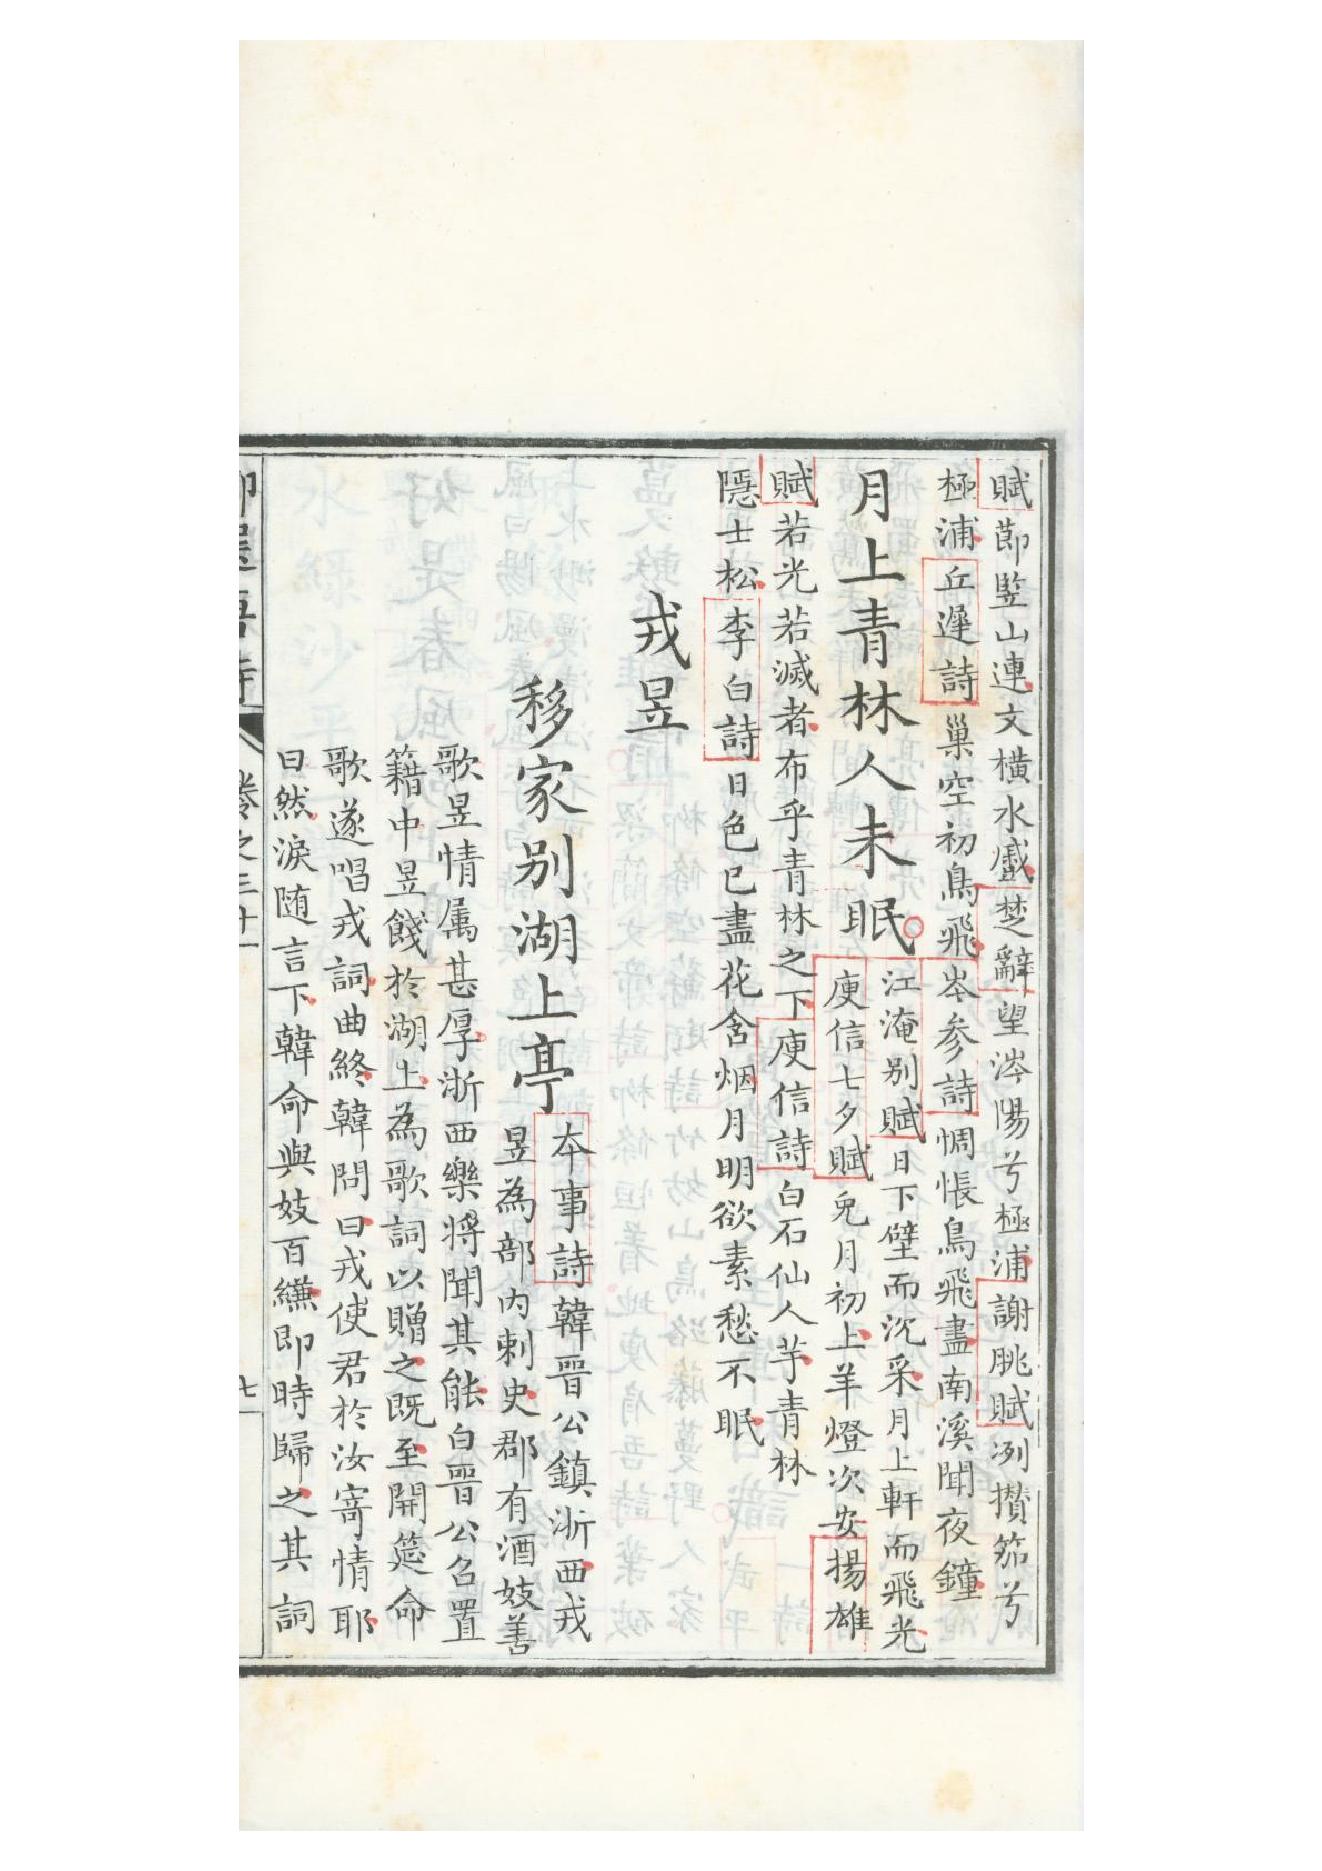 賦莭竪山連文橫水蹙楚辭望涔陽兮極浦謝朓賦洌攢笳兮
極浦丘遲詩巢空初鳥飛岑參詩惆悵鳥飛盡南溪聞夜鐘
月上青林人未眠江淹別賦日下壁而沈采月上軒而飛光
庾信七夕賦兔月初上羊燈次安揚雄
賦若光若滅者布乎青林之下庾信詩白石仙人芋青林
隱士松李白詩日色已盡花含烟月明欲素愁不眠
戎昱
移家別湖上亭本事詩韓晉公鎮浙西戎
昱為部內刺史郡有酒妓善
歌昱情属甚厚浙西樂將聞其能白晉公召置
籍中昱餞於湖上為歌詞以贈之既至開筵命
歌遂唱戎詞曲終韓問曰戎使君於汝寄情耶
曰然淚随言下韓命與妓百縑即時歸之其詞
卷之三十一
七